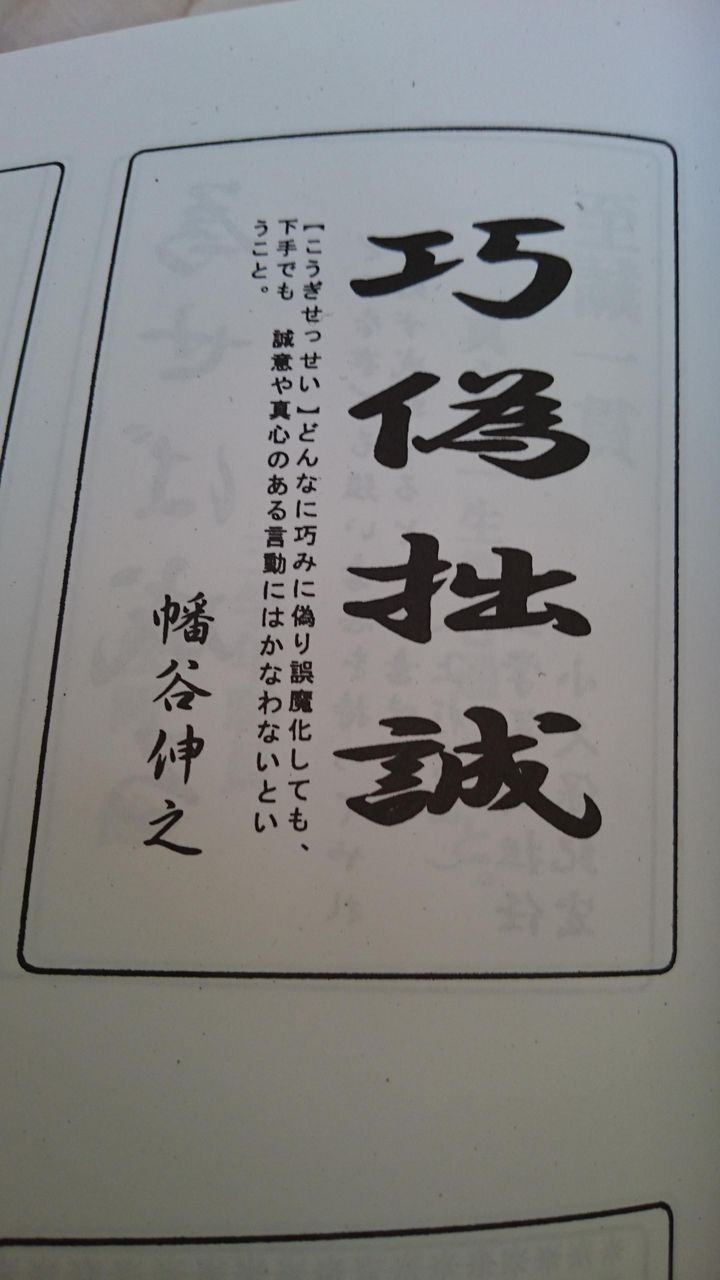 巧偽拙誠
【こうぎせっせい】どんなに巧みに偽り誤魔化しても、
下手でも　誠意や真心のある言動にはかなわないとい
うこと。
幡谷伸之